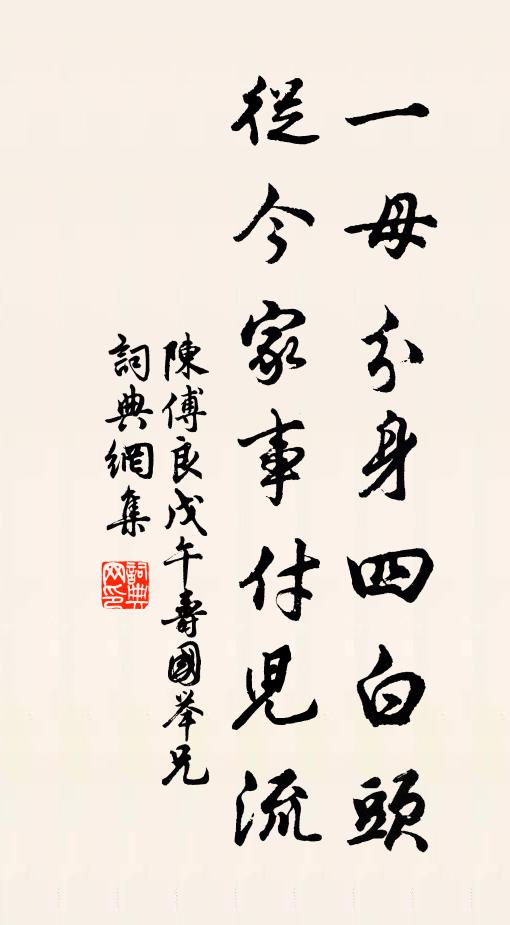 一母分身四白頭
從今家事付兒流
陳傅良戊午壽國举兄
詞典網集
詞典网印